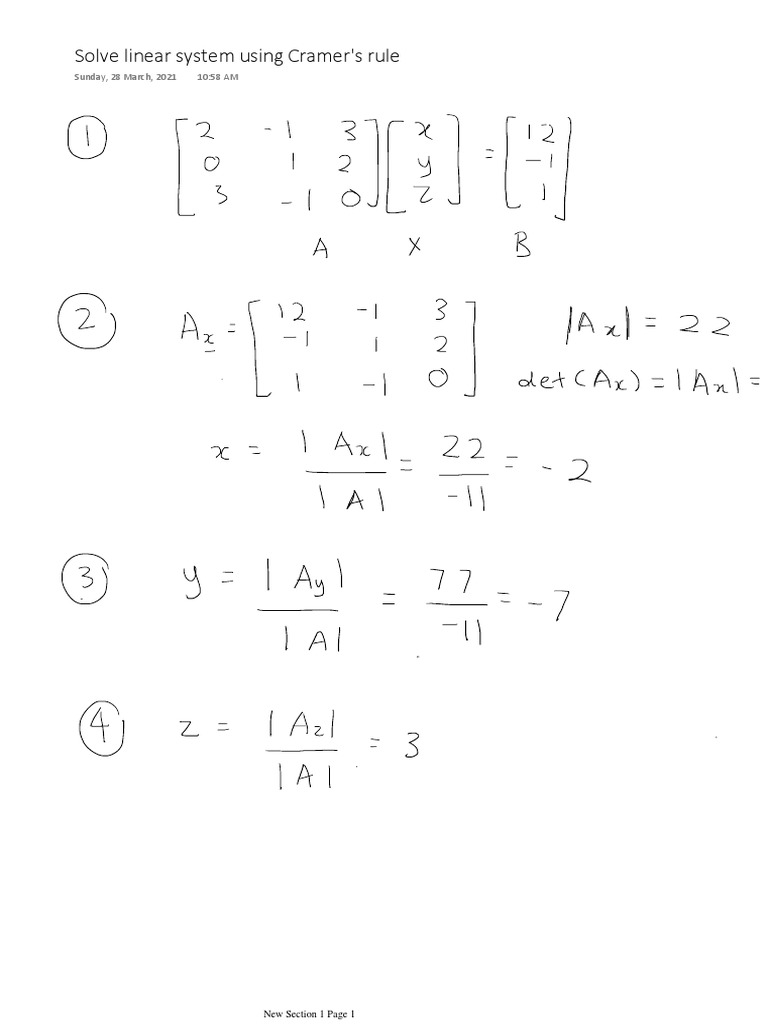 Solve linear system using Cramer's rule
Sunday, 28 March, 2021 10:58 AM
① [2 -1 3] [x] = [12]
[0 1 2] [y] [-1]
[3 -1 0] [z] [1]
A X B
② Ax = [12 -1 3] |Ax| = 22
[-1 1 2]
[1 -1 0] det(Ax) = |Ax| =
x = |Ax| / |A| = 22 / -11 = -2
③ y = |Ay| / |A| = 77 / -11 = -7
④ z = |Az| / |A| = 3
New Section 1 Page 1